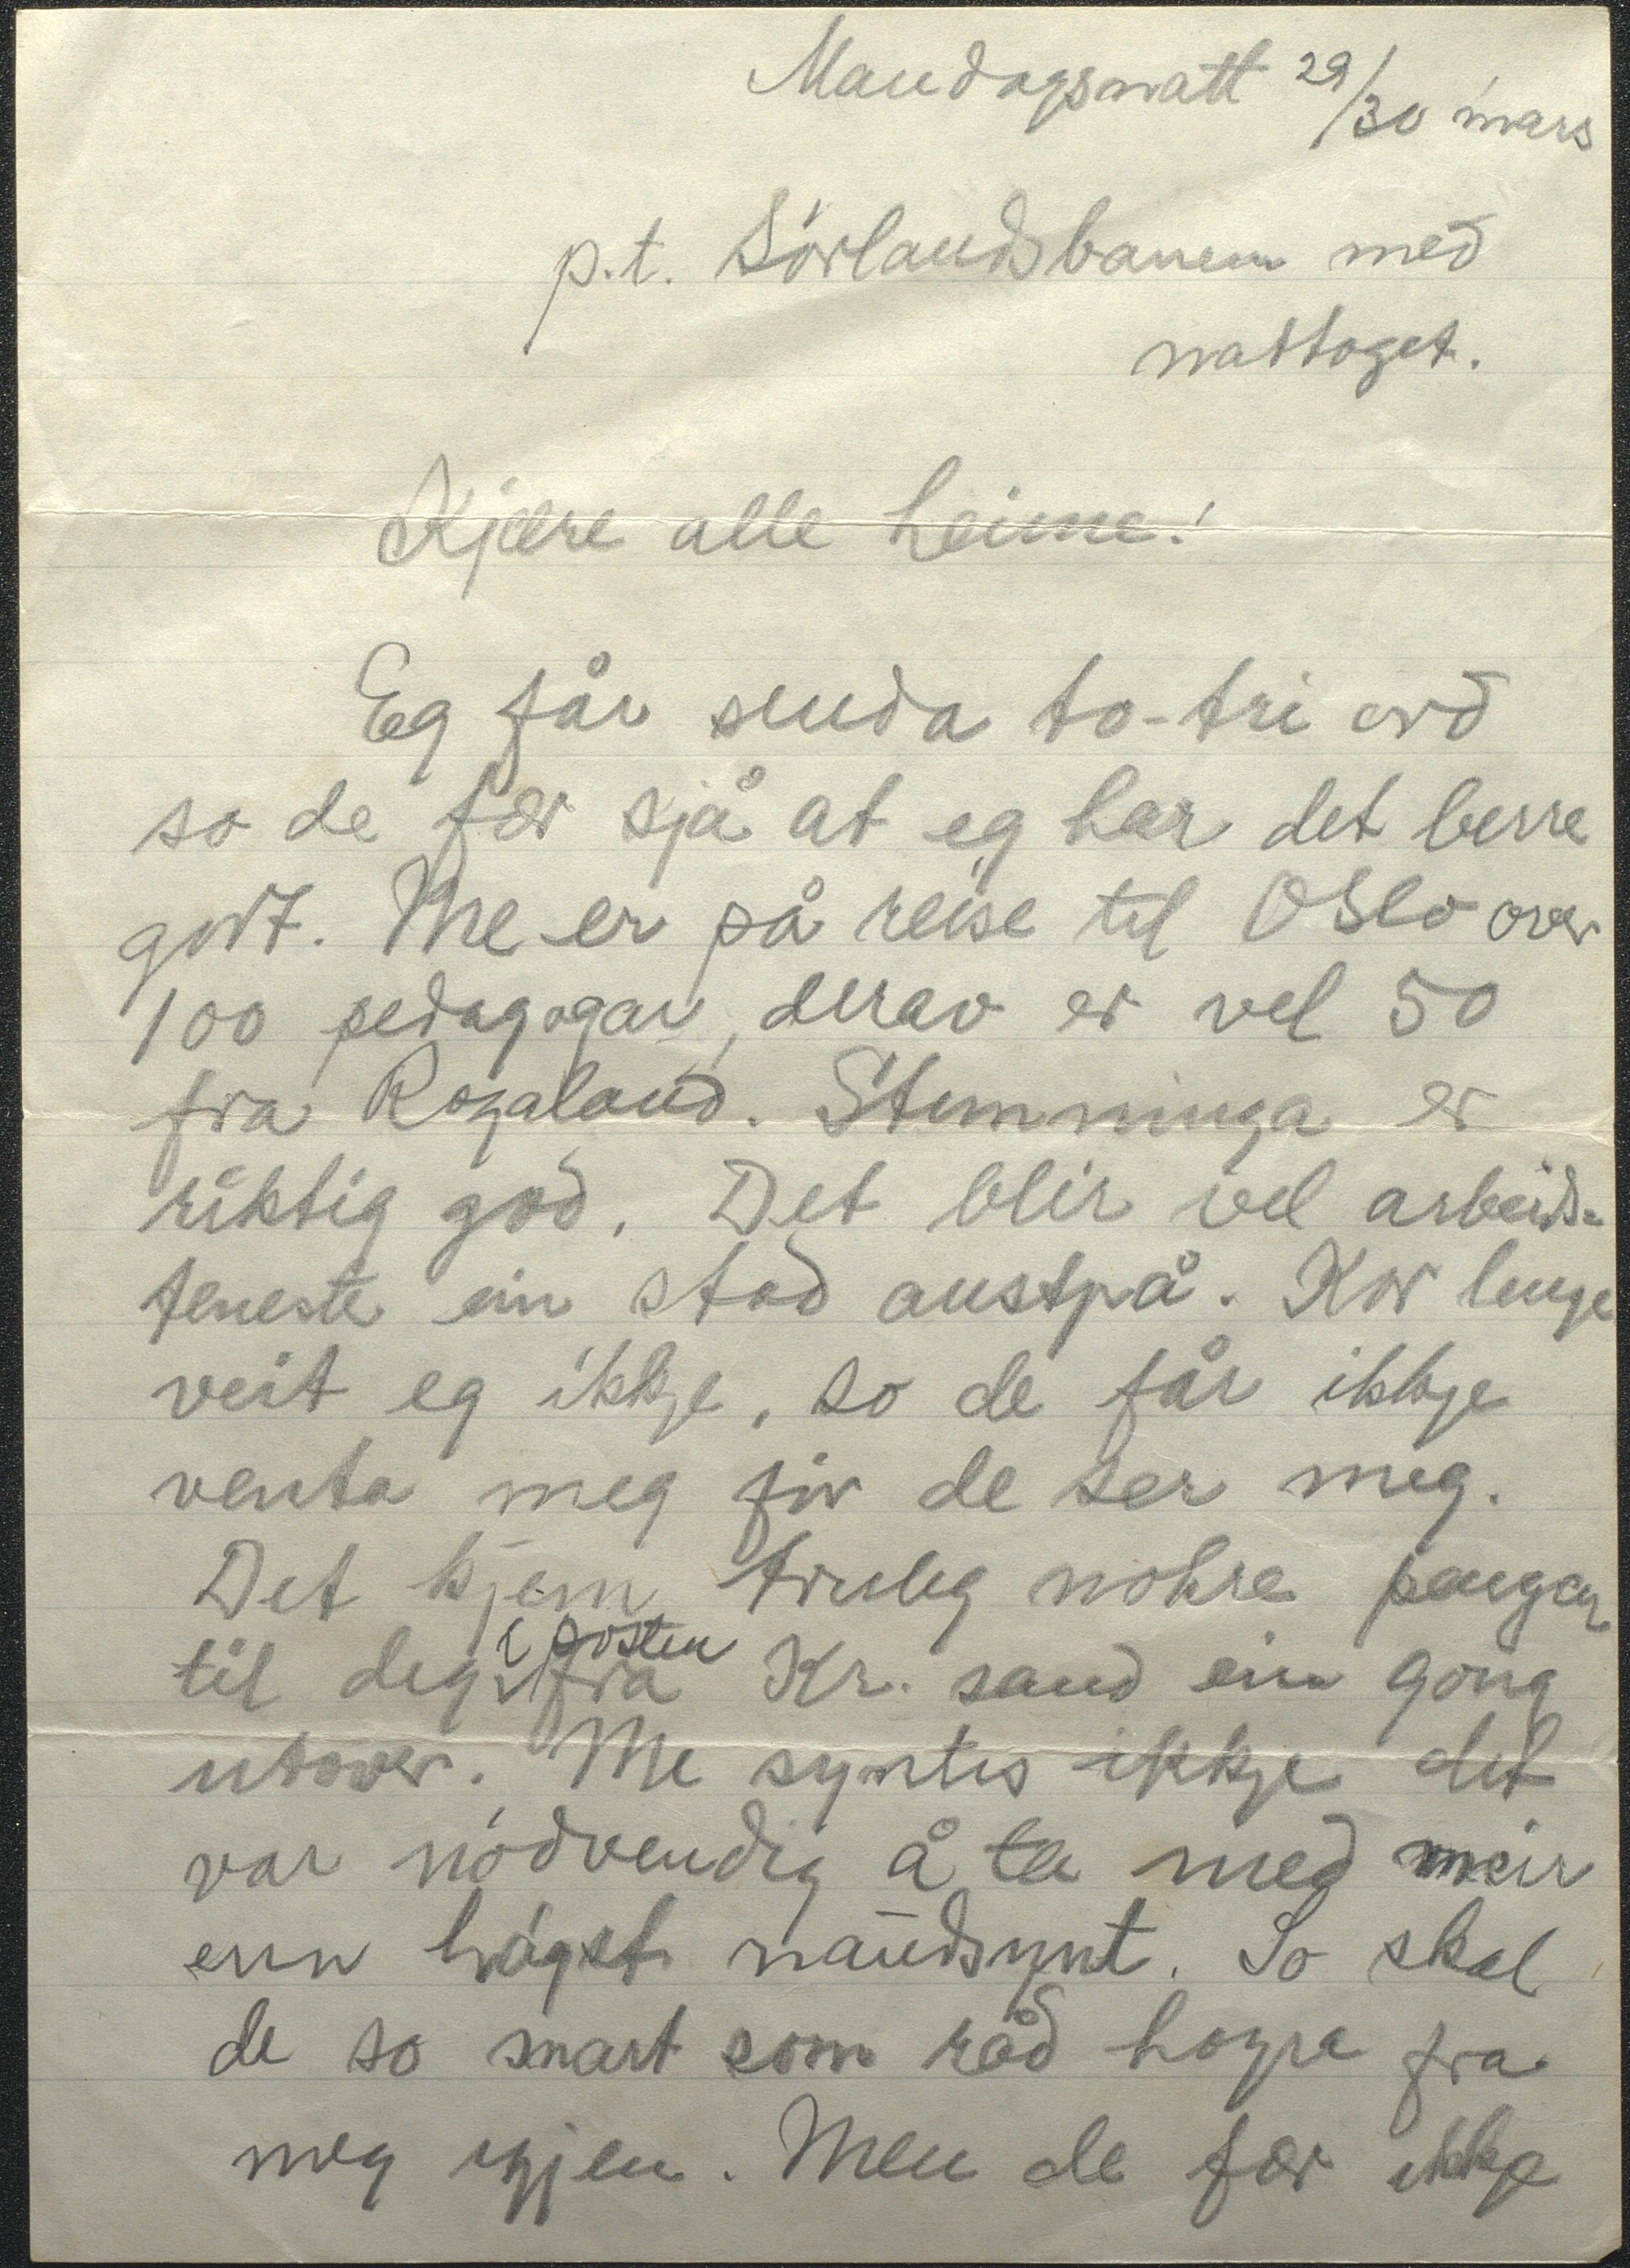 Mandagsnatt 29/30 mars
p.t. Sørlandsbanen med
nattoget.
Kjære alle heime!
Eg får senda to-tri ord
so de fær sjå at eg har det berre
godt. Me er på reise til Oslo over
100 pedagogar, derav er vel 50
fra Rogaland. Stemninga er
riktig god. Det blir vel arbeids-
teneste ein stad austpå. Kor lenge
veit eg ikkje, so de får ikkje
venta meg før de ser meg.
Det kjem truleg nokre pengar
til deg i posten fra Kr. sand ein gong
utover. Me syntes ikkje det
var nødvendig å ta med meir
enn høgst naudsynt. So skal
de so snart som råd høyra fra
meg igjen. Men de fær ikkje